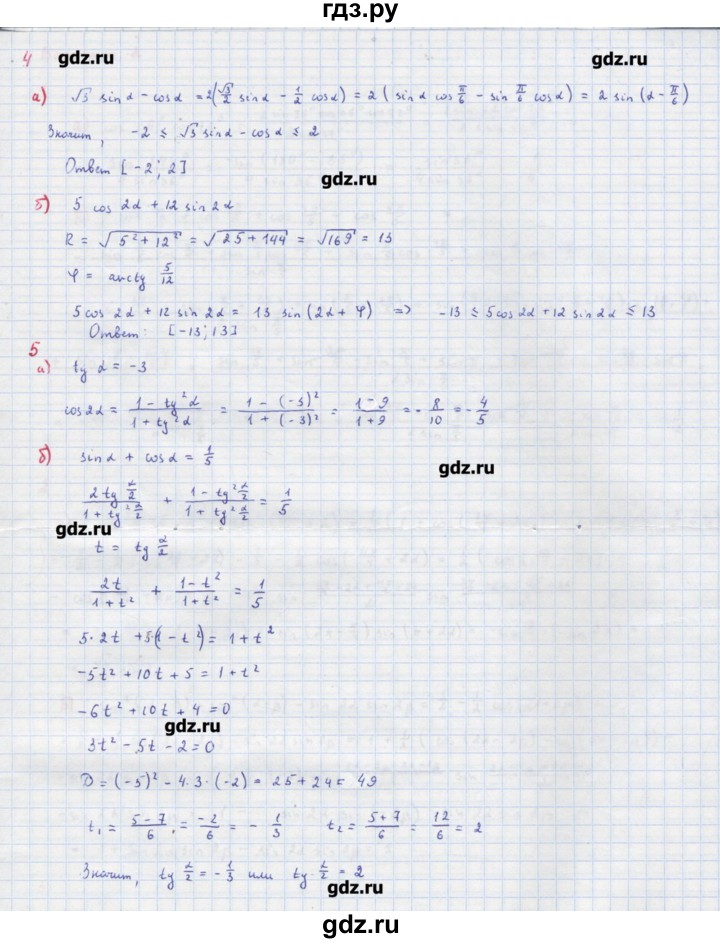 гдз.ру
4 gdz.ru gdz.ru
а) √3 sinα − cosα = 2(√3/2 sinα − 1/2 cosα) = 2 (sinα cos π/6 − sin π/6 cosα) = 2 sin (α − π/6)
Значит, −2 ≤ √3 sinα − cosα ≤ 2
Ответ [−2; 2]
gdz.ru
б) 5 cos 2α + 12 sin 2α
R = √(5² + 12²) = √(25 + 144) = √169 = 13
φ = arctg 5/12
5cos 2α + 12 sin 2α = 13 sin (2α + φ) => −13 ≤ 5cos2α + 12 sin 2α ≤ 13
Ответ: [−13; 13]
5
а) tg α = −3
cos2α = (1 − tg²α)/(1 + tg²α) = (1 − (−3)²)/(1 + (−3)²) = (1 − 9)/(1 + 9) = −8/10 = −4/5
б) sinα + cosα = 1/5
gdz.ru
(2tg α/2)/(1 + tg² α/2) + (1 − tg² α/2)/(1 + tg² α/2) = 1/5
gdz.ru
t = tg α/2
2t/(1 + t²) + (1 − t²)/(1 + t²) = 1/5
5·2t + 5·(1 − t²) = 1 + t²
−5t² + 10t + 5 = 1 + t²
−6t² + 10t + 4 = 0
gdz.ru
3t² − 5t − 2 = 0
D = (−5)² − 4·3·(−2) = 25 + 24 = 49
t₁ = (5 − 7)/6 = −2/6 = −1/3 t₂ = (5 + 7)/6 = 12/6 = 2
Значит, tg α/2 = −1/3 или tg α/2 = 2
gdz.ru
gdz.ru